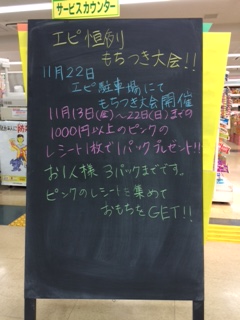 サービスカウンター
エピ恒例
もちつき大会!!
11月22日
エピ駐車場にて
もちつき大会開催
11月13日(金)〜22日(日)までの
1000円以上のピンクの
レシート1枚で1パックプレゼント!!
お1人様 3パックまでです。
ピンクのレシートを集めて
おもちをGET!!